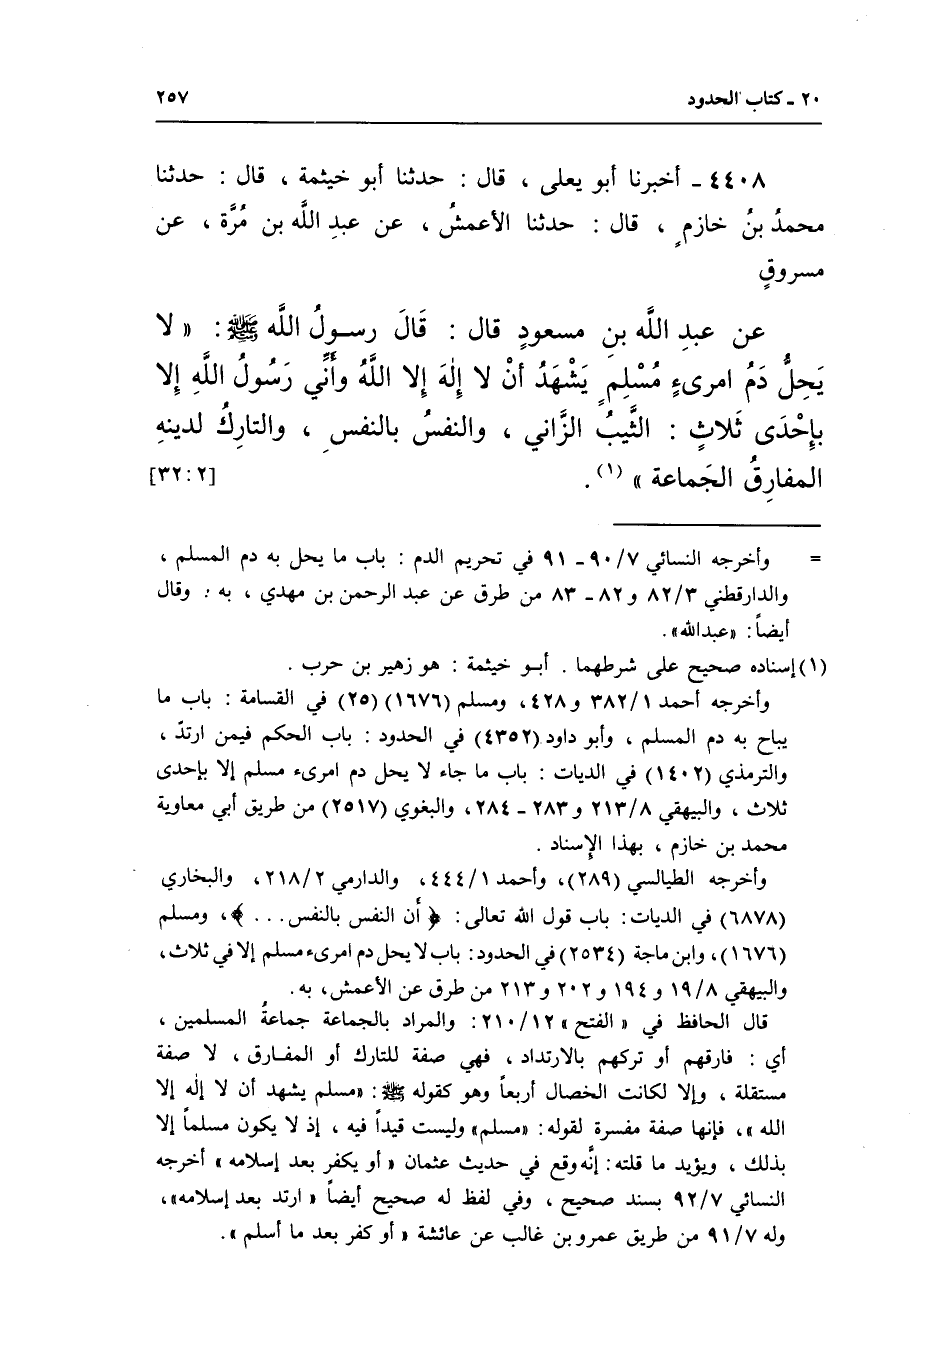 ٢٠ ـ كتاب الحدود ٢٥٧
٤٤٠٨ ـ أخبرنا أبو يعلى ، قال : حدثنا أبو خيثمة ، قال : حدثنا
محمدُ بنُ خازمٍ ، قال : حدثنا الأعمشُ ، عن عبدِ اللَّه بن مُرَّة ، عن
مسروقٍ
عن عبدِ اللَّه بنِ مسعودٍ قال : قَالَ رسولُ اللَّه ﷺ : « لا
يَحِلُّ دَمُ امرىءٍ مُسْلِمٍ يَشْهَدُ أنْ لا إلٰهَ إلا اللَّهُ وأَنِّي رَسُولُ اللَّهِ إلا
بإِحْدَى ثَلاثٍ : الثَّيِّبُ الزَّاني ، والنفسُ بالنفسِ ، والتارِكُ لدينهِ
المفارِقُ الجَماعة » (١) . [٢ : ٣٢]
= وأخرجه النسائي ٩٠/٧ ـ ٩١ في تحريم الدم : باب ما يحل به دم المسلم ،
والدارقطني ٨٢/٣ و ٨٢ ـ ٨٣ من طرق عن عبد الرحمن بن مهدي ، به . وقال
أيضاً : «عبدالله» .
(١) إسناده صحيح على شرطهما . أبو خيثمة : هو زهير بن حرب .
وأخرجه أحمد ٣٨٢/١ و ٤٢٨، ومسلم (١٦٧٦) (٢٥) في القسامة : باب ما
يباح به دم المسلم ، وأبو داود (٤٣٥٢) في الحدود : باب الحكم فيمن ارتدّ ،
والترمذي (١٤٠٢) في الديات : باب ما جاء لا يحل دم امرىء مسلم إلا بإحدى
ثلاث ، والبيهقي ٢١٣/٨ و ٢٨٣ ـ ٢٨٤، والبغوي (٢٥١٧) من طريق أبي معاوية
محمد بن خازم ، بهذا الإسناد .
وأخرجه الطيالسي (٢٨٩)، وأحمد ٤٤٤/١، والدارمي ٢١٨/٢، والبخاري
(٦٨٧٨) في الديات : باب قول الله تعالى : ﴿ أن النفس بالنفس . . . ﴾، ومسلم
(١٦٧٦)، وابن ماجة (٢٥٣٤) في الحدود : باب لا يحل دم امرىء مسلم إلا في ثلاث ،
والبيهقي ١٩/٨ و ١٩٤ و ٢٠٢ و ٢١٣ من طرق عن الأعمش ، به .
قال الحافظ في « الفتح » ٢١٠/١٢ : والمراد بالجماعة جماعةُ المسلمين ،
أي : فارقهم أو تركهم بالارتداد ، فهي صفة للتارك أو المفارق ، لا صفة
مستقلة ، وإلا لكانت الخصال أربعاً وهو كقوله ﷺ : «مسلم يشهد أن لا إلٰه إلا
الله »، فإنها صفة مفسرة لقوله : «مسلم» وليست قيداً فيه ، إذ لا يكون مسلماً إلا
بذلك ، ويؤيد ما قلته : إنَّه وقع في حديث عثمان « أو يكفر بعد إسلامه » أخرجه
النسائي ٩٢/٧ بسند صحيح ، وفي لفظ له صحيح أيضاً « ارتد بعد إسلامه»،
وله ٩١/٧ من طريق عمرو بن غالب عن عائشة « أو كفر بعد ما أسلم » .